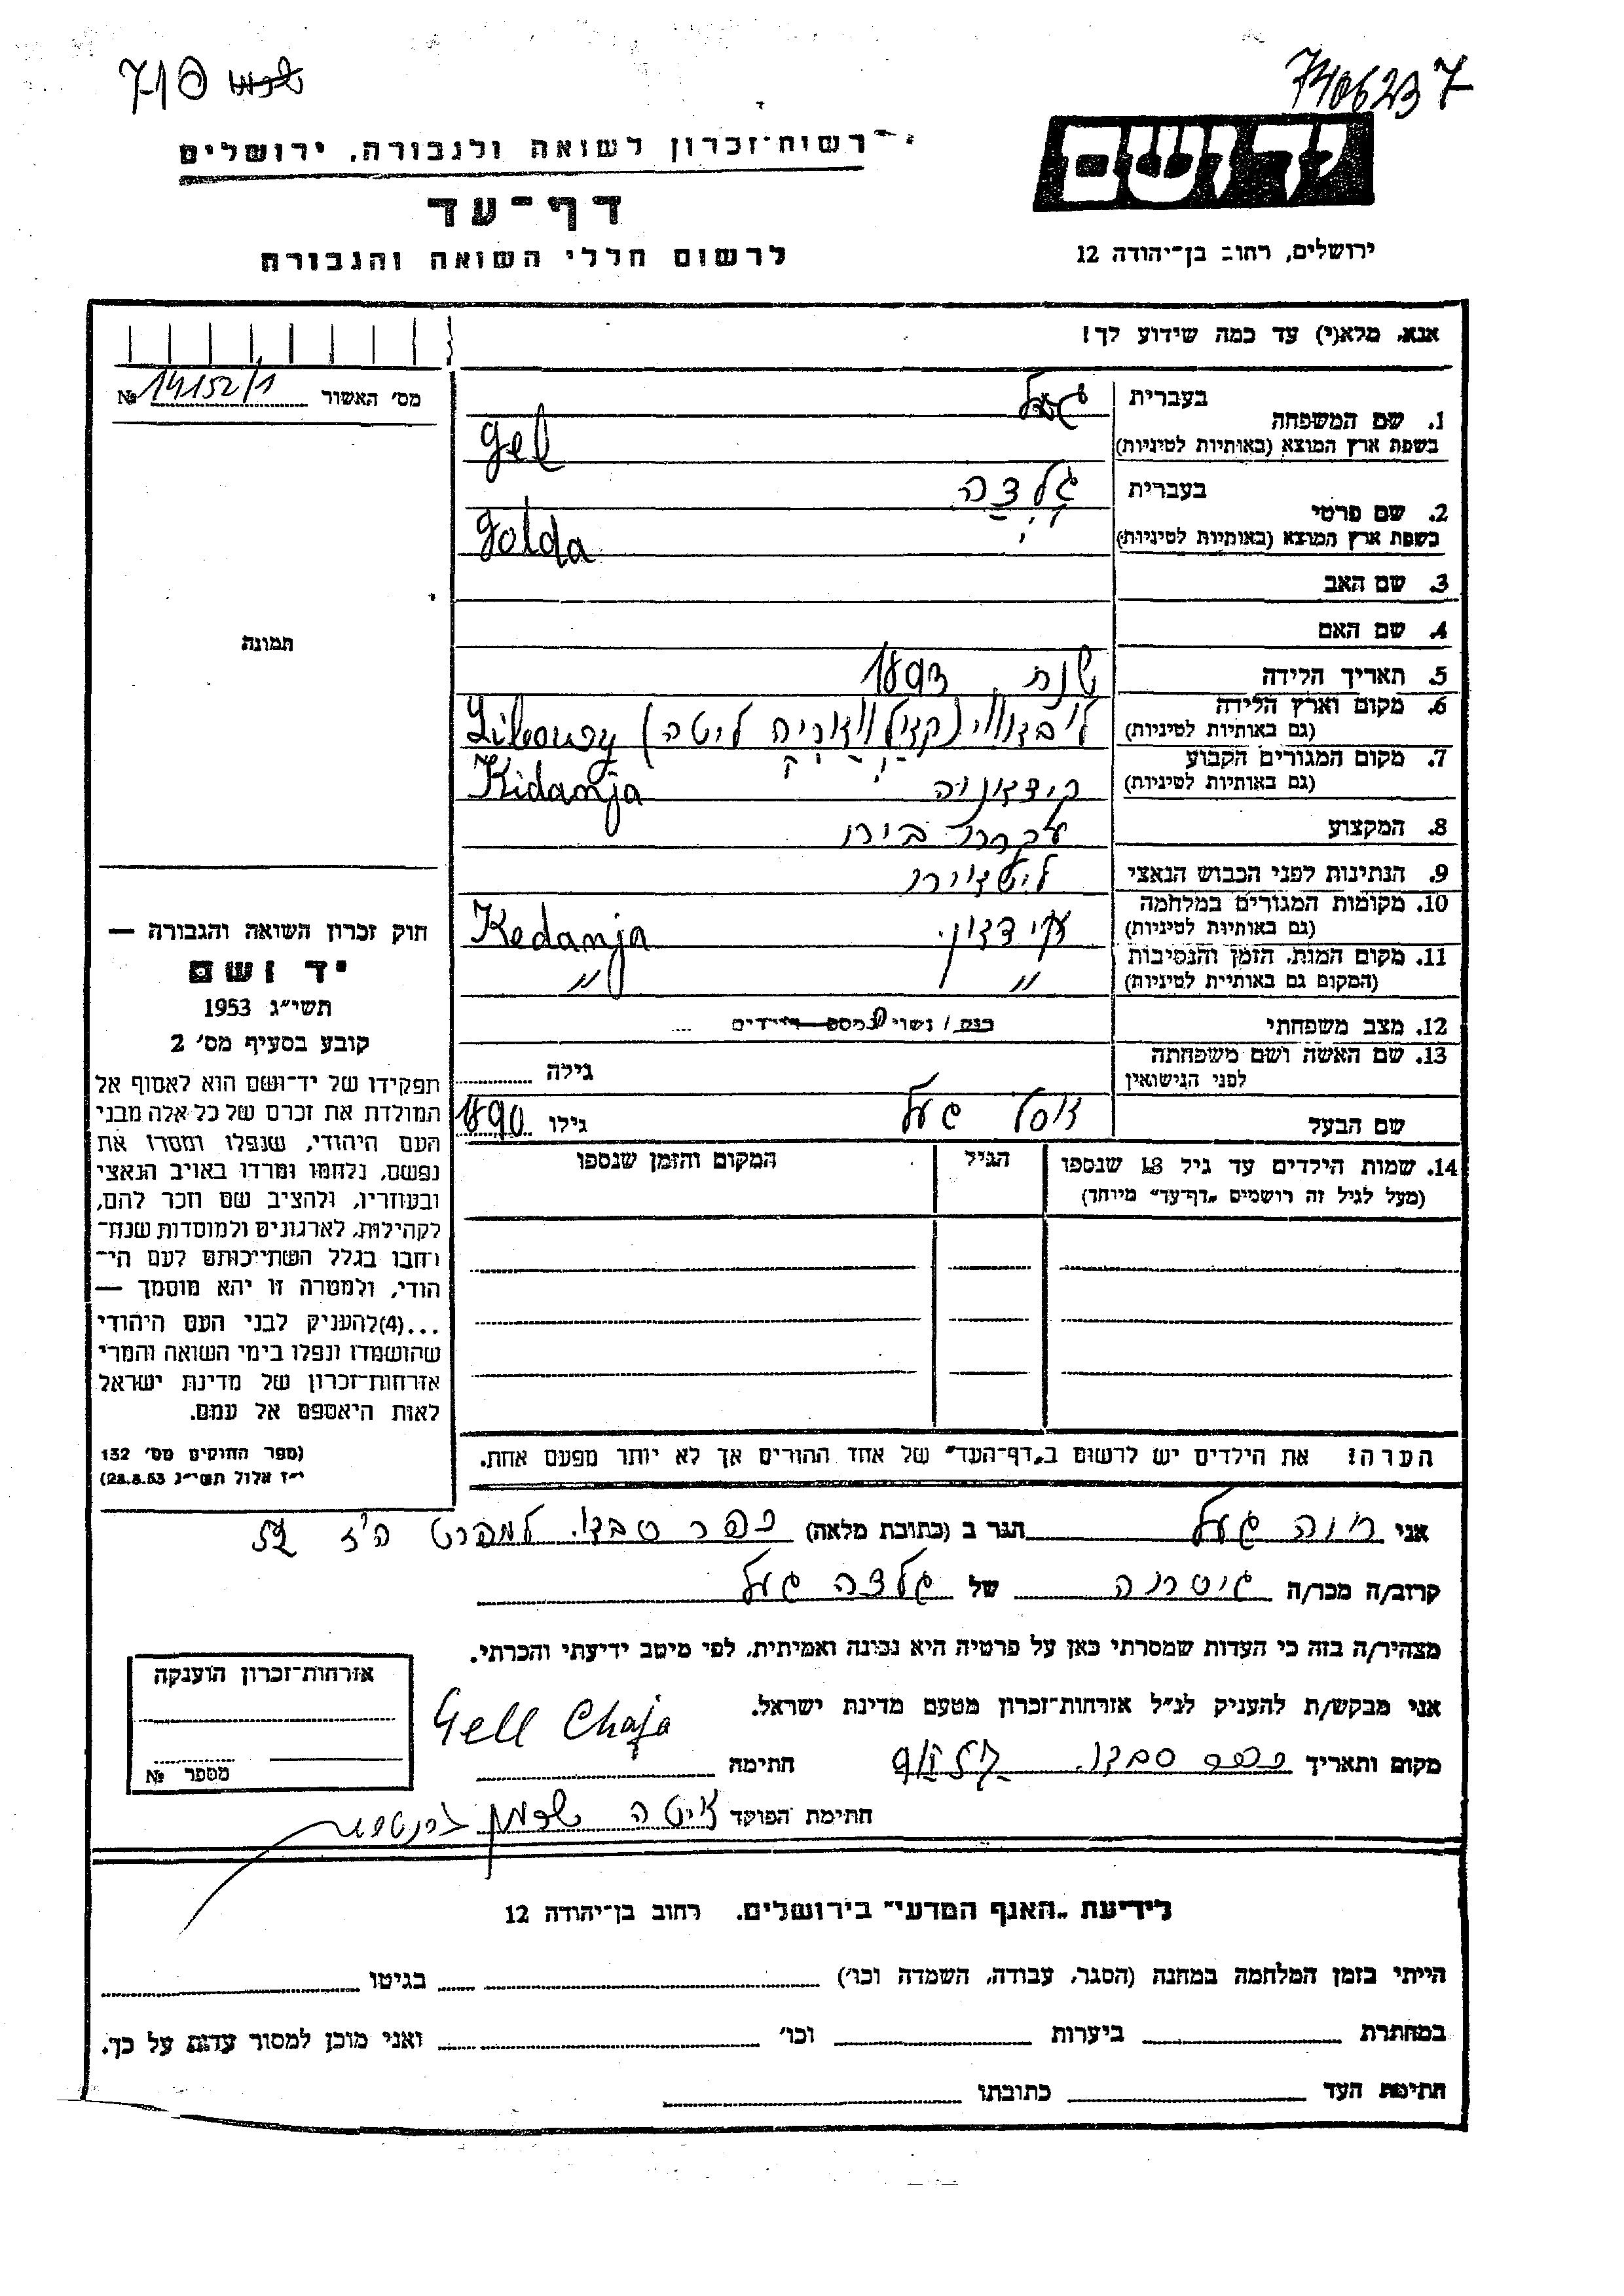 7406237
רשות־זכרון לשואה ולגבורה, ירושלים
יד ושם
דף־עד
ירושלים, רחוב בן־יהודה 12
לרשום חללי השואה והגבורה
אנא, מלא(י) עד כמה שידוע לך!
מס' האשור № 14152/1
בעברית
1. שם המשפחה
בשפת ארץ המוצא (באותיות לטיניות) Gel
בעברית גלדה
2. שם פרטי
בשפת ארץ המוצא (באותיות לטיניות) Golda
3. שם האב
4. שם האם
תמונה
5. תאריך הלידה שנת 1893
6. מקום וארץ הלידה
(גם באותיות לטיניות) ליטה)
7. מקום המגורים הקבוע
(גם באותיות לטיניות) Kidanja
8. המקצוע עקרת בית
9. הנתינות לפני הכבוש הנאצי ליטאית
10. מקומות המגורים במלחמה
(גם באותיות לטיניות) Kedanja
11. מקום המות, הזמן והנסיבות
(המקום גם באותיות לטיניות) " "
12. מצב משפחתי רווק / נשוי מספר ילדים
13. שם האשה ושם משפחתה
לפני הנישואין גילה
שם הבעל יוסף געל גילו 1890
14. שמות הילדים עד גיל 18 שנספו
(מעל לגיל זה רושמים „דף־עד" מיוחד)
הגיל
המקום והזמן שנספו
הערה! את הילדים יש לרשום ב„דף־העד" של אחד ההורים אך לא יותר מפעם אחת.
חוק זכרון השואה והגבורה —
יד ושם
תשי"ג 1953
קובע בסעיף מס' 2
תפקידו של יד־ושם הוא לאסוף אל
המולדת את זכרם של כל אלה מבני
העם היהודי, שנפלו ומסרו את
נפשם, נלחמו ומרדו באויב הנאצי
ובעוזריו, ולהציב שם וזכר להם,
לקהילות, לארגונים ולמוסדות שנח־
רחבו בגלל השתייכותם לעם הי־
הודי, ולמטרה זו יהא מוסמך —
...(4)להעניק לבני העם היהודי
שהושמדו ונפלו בימי השואה והמרי
אזרחות־זכרון של מדינת ישראל
לאות היאספם אל עמם.
(ספר החוקים מס' 132
י"ז אלול תשי"ג 28.8.53)
אני חיה געל הגר ב (כתובת מלאה) כפר סבא
קרוב/ה מכר/ה גיסתה של גלדה געל
מצהיר/ה בזה כי העדות שמסרתי כאן על פרטיה היא נכונה ואמיתית, לפי מיטב ידיעתי והכרתי.
אני מבקש/ת להעניק לנ"ל אזרחות־זכרון מטעם מדינת ישראל.
מקום ותאריך כפר סבא חתימה Gell Chaja
חתימת הפוקד
אזרחות־זכרון הוענקה
מספר №
לידיעת „האגף המדעי" בירושלים, רחוב בן־יהודה 12
הייתי בזמן המלחמה במחנה (הסגר, עבודה, השמדה וכו') בגיטו
במחתרת ביערות וכו' ואני מוכן למסור עדות על כך.
חתימת העד כתובתו